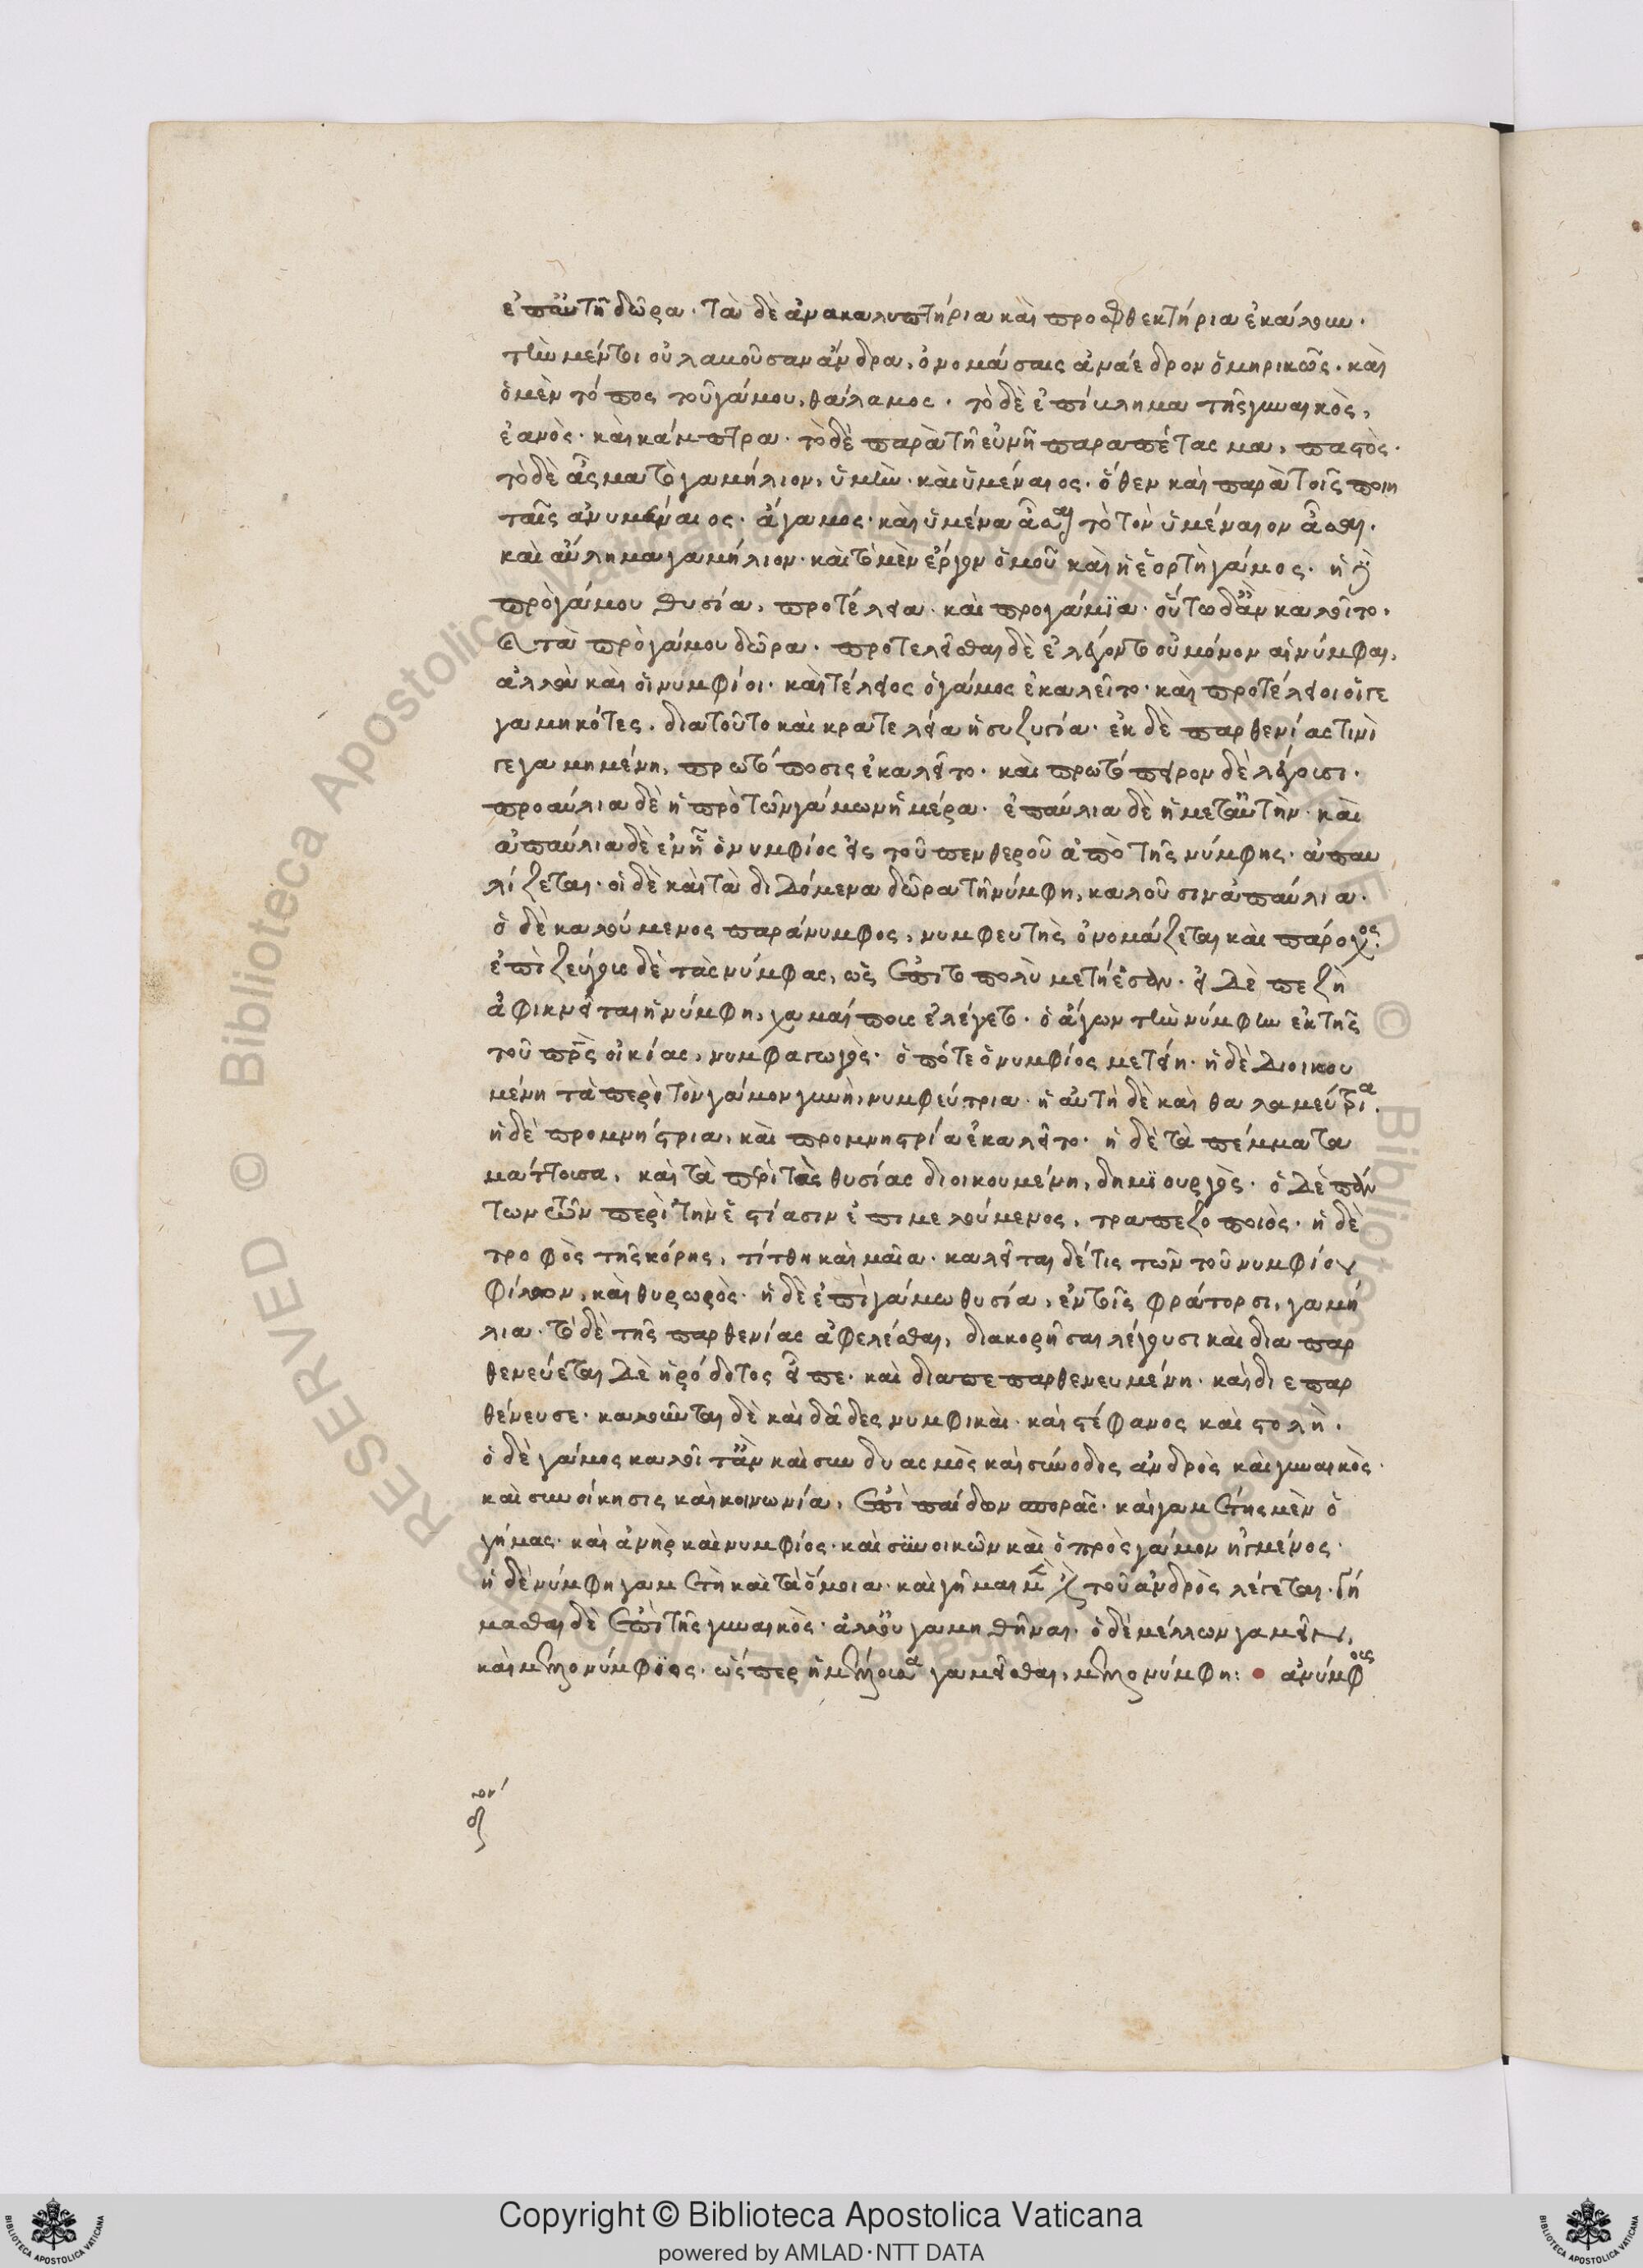 ἐπ αὐτῇ δῶρα. τὰ δὲ ἀνακαλυπτήρια καὶ προσφθεκτήρια ἐκάλουν.
τὴν μέντοι οὐ λαχοῦσαν ἄνδρα, ὀνομάσαις ἀνάεδνον ὁμηρικῶς. καὶ
ὁ μὲν τόπος τοῦ γάμου, θάλαμος. τὸ δὲ ἐπίβλημα τῆς γυναικὸς,
ἑανός. καὶ κάλυπτρα. τὸ δὲ παρὰ τῇ εὐνῇ παραπέτασμα, παστός.
τὸ δὲ ᾆσμα τὸ γαμήλιον, ὑμὴν. καὶ ὑμέναιος. ὅθεν καὶ παρὰ τοῖς ποιη
ταῖς ἀνυμέναιος. ἄγαμος. καὶ ὑμέναι τὸ τὸν ὑμέναιον ᾆσαι.
καὶ αὔλημα γαμήλιον. καὶ τὸ μὲν ἔργον ὁμοῦ καὶ ἡ ἑορτὴ γάμος. ἡ δὲ
πρὸ γάμου θυσία, προτέλεια. καὶ προγάμια. οὕτω δ ἂν καλοῖτο.
καὶ τὰ πρὸ γάμου δῶρα. προτελεῖσθαι δὲ ἐλέγοντο οὐ μόνον αἱ νύμφαι,
ἀλλὰ καὶ οἱ νυμφίοι. καὶ τέλος ὁ γάμος ἐκαλεῖτο. καὶ προτέλειοι οἱ γε
γαμηκότες. διατοῦτο καὶ ἥρα τελεία ἡ συζυγία. ἐκ δὲ παρθενίας τινὶ
γεγαμημένη, πρωτόποσις ἐκαλεῖτο. καὶ πρωτόπειρον δὲ λέγουσι.
προαύλια δὲ ἡ πρὸ τῶν γάμων ἡμέρα. ἐπαύλια δὲ ἡ μετ αὐτήν. καὶ
ἀπαύλια δὲ ἐν ᾗ ὁ νυμφίος εἰς τοῦ πενθεροῦ ἀπὸ τῆς νύμφης. ἀπαυ
λίζεται. οἱ δὲ καὶ τὰ διδόμενα δῶρα τῇ νύμφῃ, καλοῦσιν ἀπαύλια.
ὁ δὲ καλούμενος παράνυμφος, νυμφευτὴς ὀνομάζεται καὶ πάροχος.
ἐπὶ ζεύγους δὲ τὰς νύμφας, ὡς ἐπὶ τὸ πολὺ μετῄεσαν. εἰ δὲ πεζὴ
ἀφικνεῖται ἡ νύμφη, χαμαίπους ἐλέγετο. ὁ ἄγων τὴν νύμφην ἐκ τῆς
τοῦ πρς οἰκίας, νυμφαγωγὸς. ὁπότε ὁ νυμφίος μετείη. ἡ δὲ διοικου
μένη τὰ περὶ τὸν γάμον γυνὴ, νυμφεύτρια. ἡ αὐτὴ δὲ καὶ θαλαμεύτρια.
ἡ δὲ προμνήστρια, καὶ προμνηστρία ἐκαλεῖτο. ἡ δὲ τὰ πέμματα
μάττουσα, καὶ τὰ περὶ τὰς θυσίας διοικουμένη, δημιουργὸς. ὁ δὲ πάν
των τῶν περὶ τὴν ἑστίασιν ἐπιμελούμενος, τραπεζοποιός. ἡ δὲ
τροφὸς τῆς κόρης, τίτθη καὶ μαῖα. καλεῖται δέ τις τῶν τοῦ νυμφίου
φίλων, καὶ θυρωρὸς. ἡ δὲ ἐπὶ γάμω θυσία, ἐν τοῖς φράτορσι, γαμή
λια. τὸ δὲ τῆς παρθενίας ἀφελέσθαι, διακορῆσαι λέγουσι καὶ διαπαρ
θενεύεται δὲ ἡρόδοτος εἶπε. καὶ διαπεπαρθενευμένη. καὶ διεπαρ
θένευσε. καλοῦνται δὲ καὶ δᾷδες νυμφικαὶ. καὶ στέφανος καὶ στολὴ.
ὁ δὲ γάμος καλοῖτ ἂν καὶ συνδυασμὸς καὶ σύνοδος ἀνδρὸς καὶ γυναικὸς.
καὶ συνοίκησις καὶ κοινωνία, ἐπὶ παίδων σπορᾶς. καὶ γαμέτης μὲν ὁ
γήμας. καὶ ἀνὴρ καὶ νυμφίος. καὶ συνοικῶν καὶ ὁ πρὸς γάμον ἠγμένος.
ἡ δὲ νύμφη γαμετὴ καὶ τὰ ὅμοια. καὶ γῆμαι μὲν ἐπὶ τοῦ ἀνδρὸς λέγεται. γή
μασθαι δὲ ἐπὶ τῆς γυναικὸς. ἀλλ οὐ γαμηθῆναι. ὁ δὲ μέλλων γαμεῖν,
καὶ μελλονύμφιος. ὥσπερ ἡ μέλλουσα γαμεῖσθαι, μελλονύμφη: ἀνύμφους